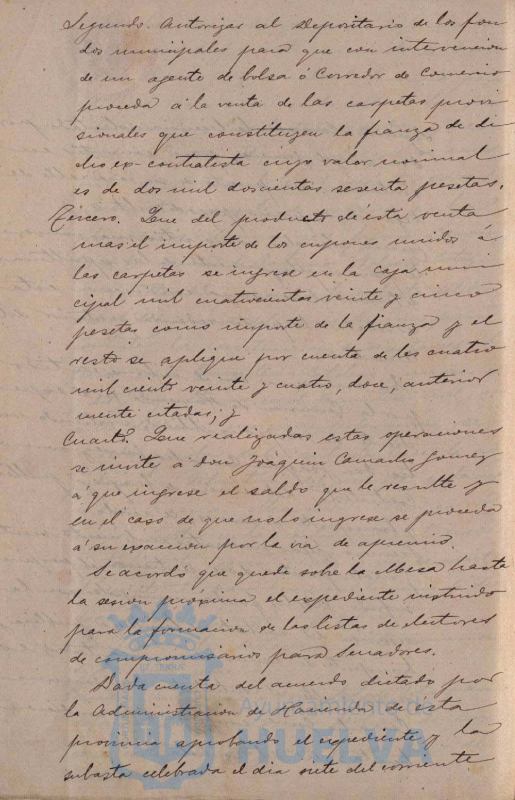 Segundo. Autorizar al Depositario de los fon
dos municipales para que con intervencion
de un agente de bolsa ó Corredor de Comercio
proceda á la venta de las carpetas provi
sionales que constituyen la fianza de di
cho ex-contratista cuyo valor nominal
es de dos mil doscientas sesenta pesetas.
Tércero. Que del producto de ésta venta
mas el importe de los cupones unidos á
las carpetas se ingrese en la Caja muni
cipal mil cuatrocientas veinte y cinco
pesetas como importe de la fianza y el
resto se aplique por cuenta de les cuatro
mil ciento veinte y cuatro, doce, anterior
mente citadas; y
Cuarto. Que realizadas estas operaciones
se invite á don Joaquin Camacho Gomez
á que ingrese el saldo que le resulte y
en el caso de que no lo ingrese se proceda
á su exaccion por la via de apremio.
Se acordó que quede sobre la Mesa hasta
la sesion próxima el expediente instruido
para la formacion de las listas de electores
de compromisarios para Senadores.
Dada cuenta del acuerdo dictado por
la Administracion de Hacienda de ésta
provincia aprobando el expediente y la
subasta celebrada el dia siete del corriente
Ayuntamiento de
HUELVA